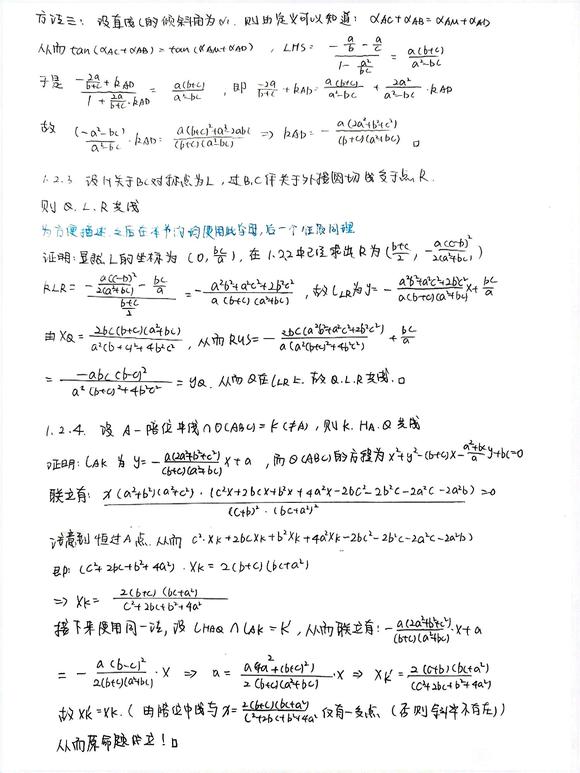 方法三: 设直线l的倾斜角为α_l. 则由定义可以知道: α_AC+α_AB=α_AM+α_AD
从而tan(α_AC+α_AB)=tan(α_AM+α_AD), LHS= (-a/b - a/c)/(1 - a²/bc) = a(b+c)/(a²-bc)
于是 (-2a/(b+c) + k_AD)/(1 + 2a/(b+c)·k_AD) = a(b+c)/(a²-bc), 即 -2a/(b+c) + k_AD = a(b+c)/(a²-bc) + 2a²/(a²-bc)·k_AD
故 (-a²-bc)/(a²-bc)·k_AD = (a(b+c)²+2a³-2abc)/((b+c)(a²-bc)) ⇒ k_AD = -a(2a²+b²+c²)/((b+c)(a²+bc)) □
1.2.3 设H关于BC对称点为L, 过B,C作关于外接圆切线交于点R.
则Q.L.R共线
证明: 显然L的坐标为(0, bc/a), 在1.2.2中已经求出R为((b+c)/2, -a(c-b)²/(2(a²+bc)))
k_LR = (-a(c-b)²/(2(a²+bc)) - bc/a)/((b+c)/2) = -(a²b²+a²c²+2b²c²)/(a(b+c)(a²+bc)), 故l_LR为y=-(a²b²+a²c²+2b²c²)/(a(b+c)(a²+bc))x + bc/a
由x_Q = 2bc(b+c)(a²+bc)/(a²(b+c)²+4b²c²), 从而RHS = -2bc(a²b²+a²c²+2b²c²)/(a(a²(b+c)²+4b²c²)) + bc/a
= -abc(b-c)²/(a²(b+c)²+4b²c²) = y_Q. 从而Q在l_LR上. 故Q.L.R共线. □
1.2.4. 设A-陪位中线∩⊙(ABC)=K(≠A), 则K.H_A.Q共线
证明: l_AK为y=-a(2a²+b²+c²)/((b+c)(a²+bc))x+a, 而⊙(ABC)的方程为x²+y²-(b+c)x-(a²+bc)/a y+bc=0
联立有: x(a²+b²)(a²+c²)·(c²x+2bcx+b²x+4a²x-2bc²-2b²c-2a²c-2a²b)/((c+b)²·(bc+a²)²) =0
注意到恒过A点. 从而c²·x_K+2bcx_K+b²x_K+4a²x_K-2bc²-2b²c-2a²c-2a²b)
即: (c²+2bc+b²+4a²)·x_K = 2(b+c)(bc+a²)
⇒ x_K = 2(b+c)(bc+a²)/(c²+2bc+b²+4a²)
接下来使用同一法, 设l_HAQ∩l_AK=K', 从而联立有: -a(2a²+b²+c²)/((b+c)(a²+bc))·x+a
= -a(b-c)²/(2(b+c)(a²+bc))·x ⇒ a = a(4a²+(b+c)²)/(2(b+c)(a²+bc))·x ⇒ x_K' = 2(c+b)(bc+a²)/(c²+2bc+b²+4a²)
故x_K=x_K'. (由陪位中线与x=2(b+c)(bc+a²)/(c²+2bc+b²+4a²)仅有一交点. (否则斜率不存在))
从而原命题成立! □